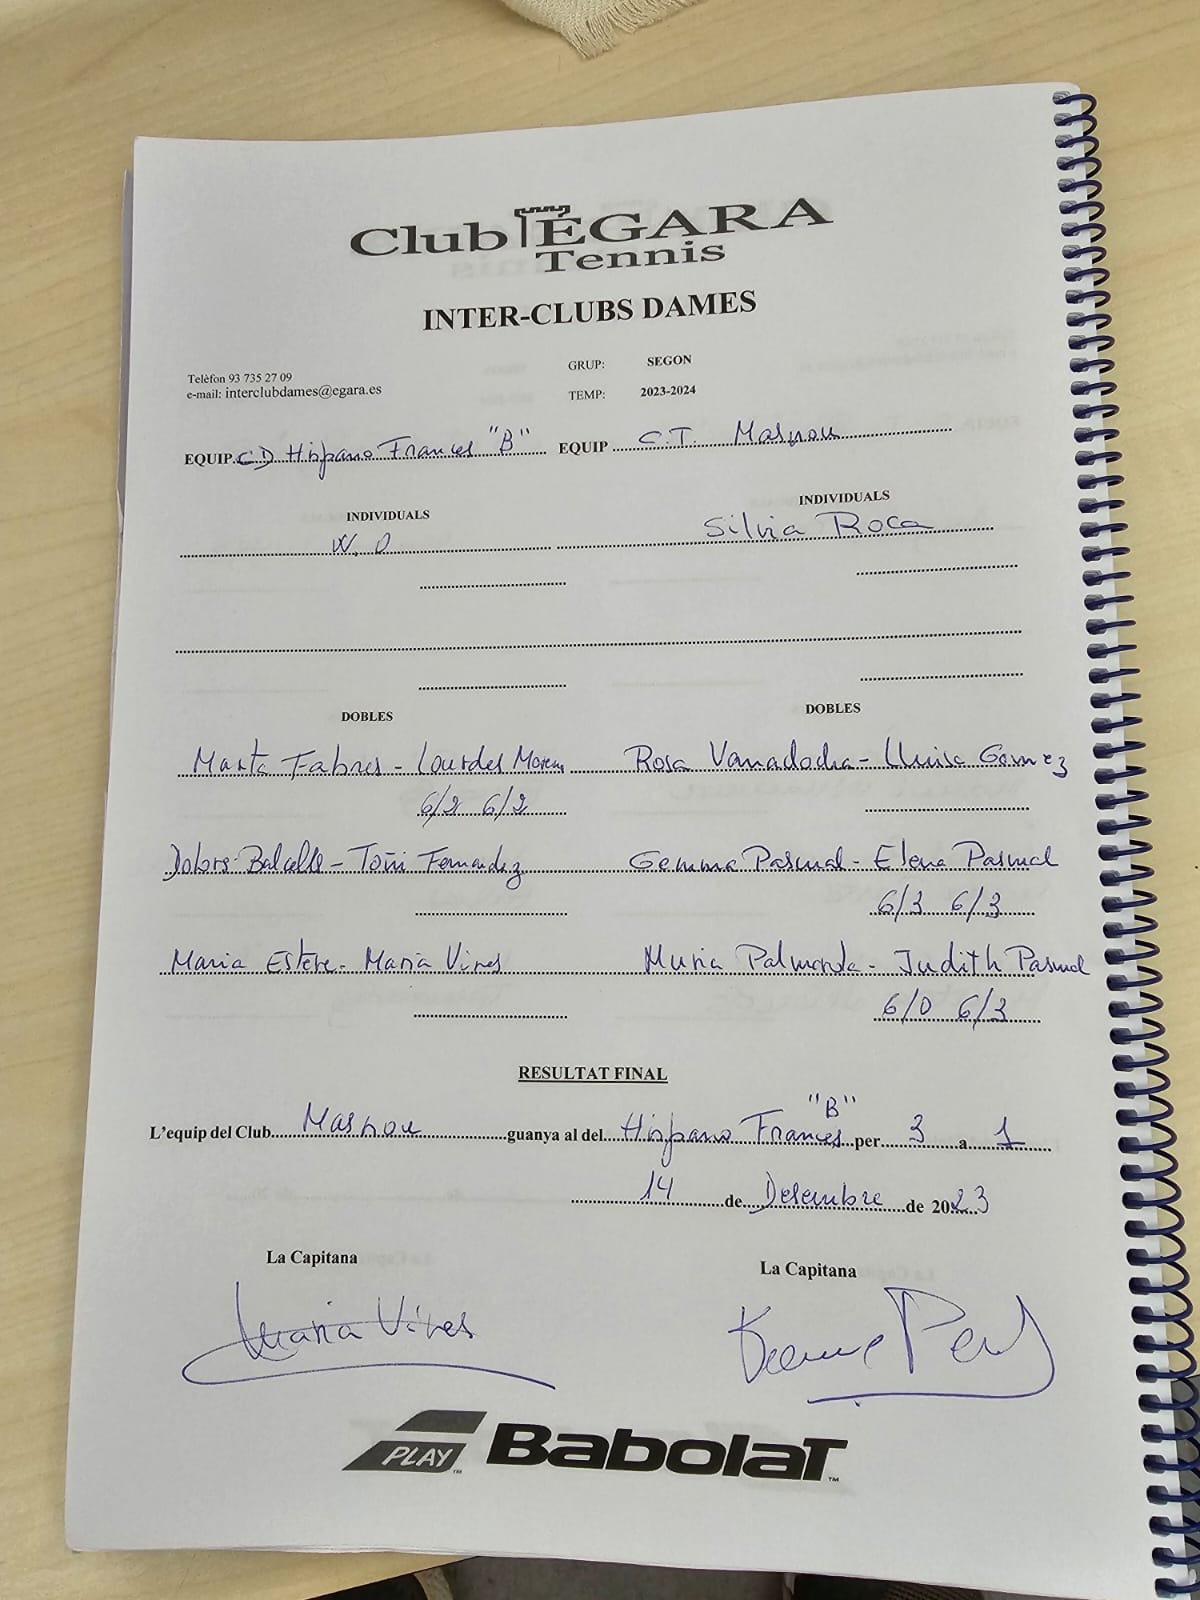 Club ÈGARA
Tennis
INTER-CLUBS DAMES
GRUP: SEGON
Telèfon 93 735 27 09
e-mail: interclubdames@egara.es
TEMP: 2023-2024
EQUIP. CD Hispano Frances "B" EQUIP C.T. Masnou
INDIVIDUALS INDIVIDUALS
W.O Silvia Roca
DOBLES DOBLES
Marta Fabres - Lourdes Moreno Rosa - Lluisa Gomez
6/2 6/2
Dolors Balcells - Toñi Fernandez Gemma Pascual - Elena Pascual
6/3 6/3
Maria Esteve - Maria Vives Nuria - Judith Pascual
6/0 6/3
RESULTAT FINAL
L'equip del Club Masnou guanya al del Hispano Frances "B" per 3 a 1
14 de Desembre de 2023
La Capitana La Capitana
Maria Vives
PLAY™ BabolaT™